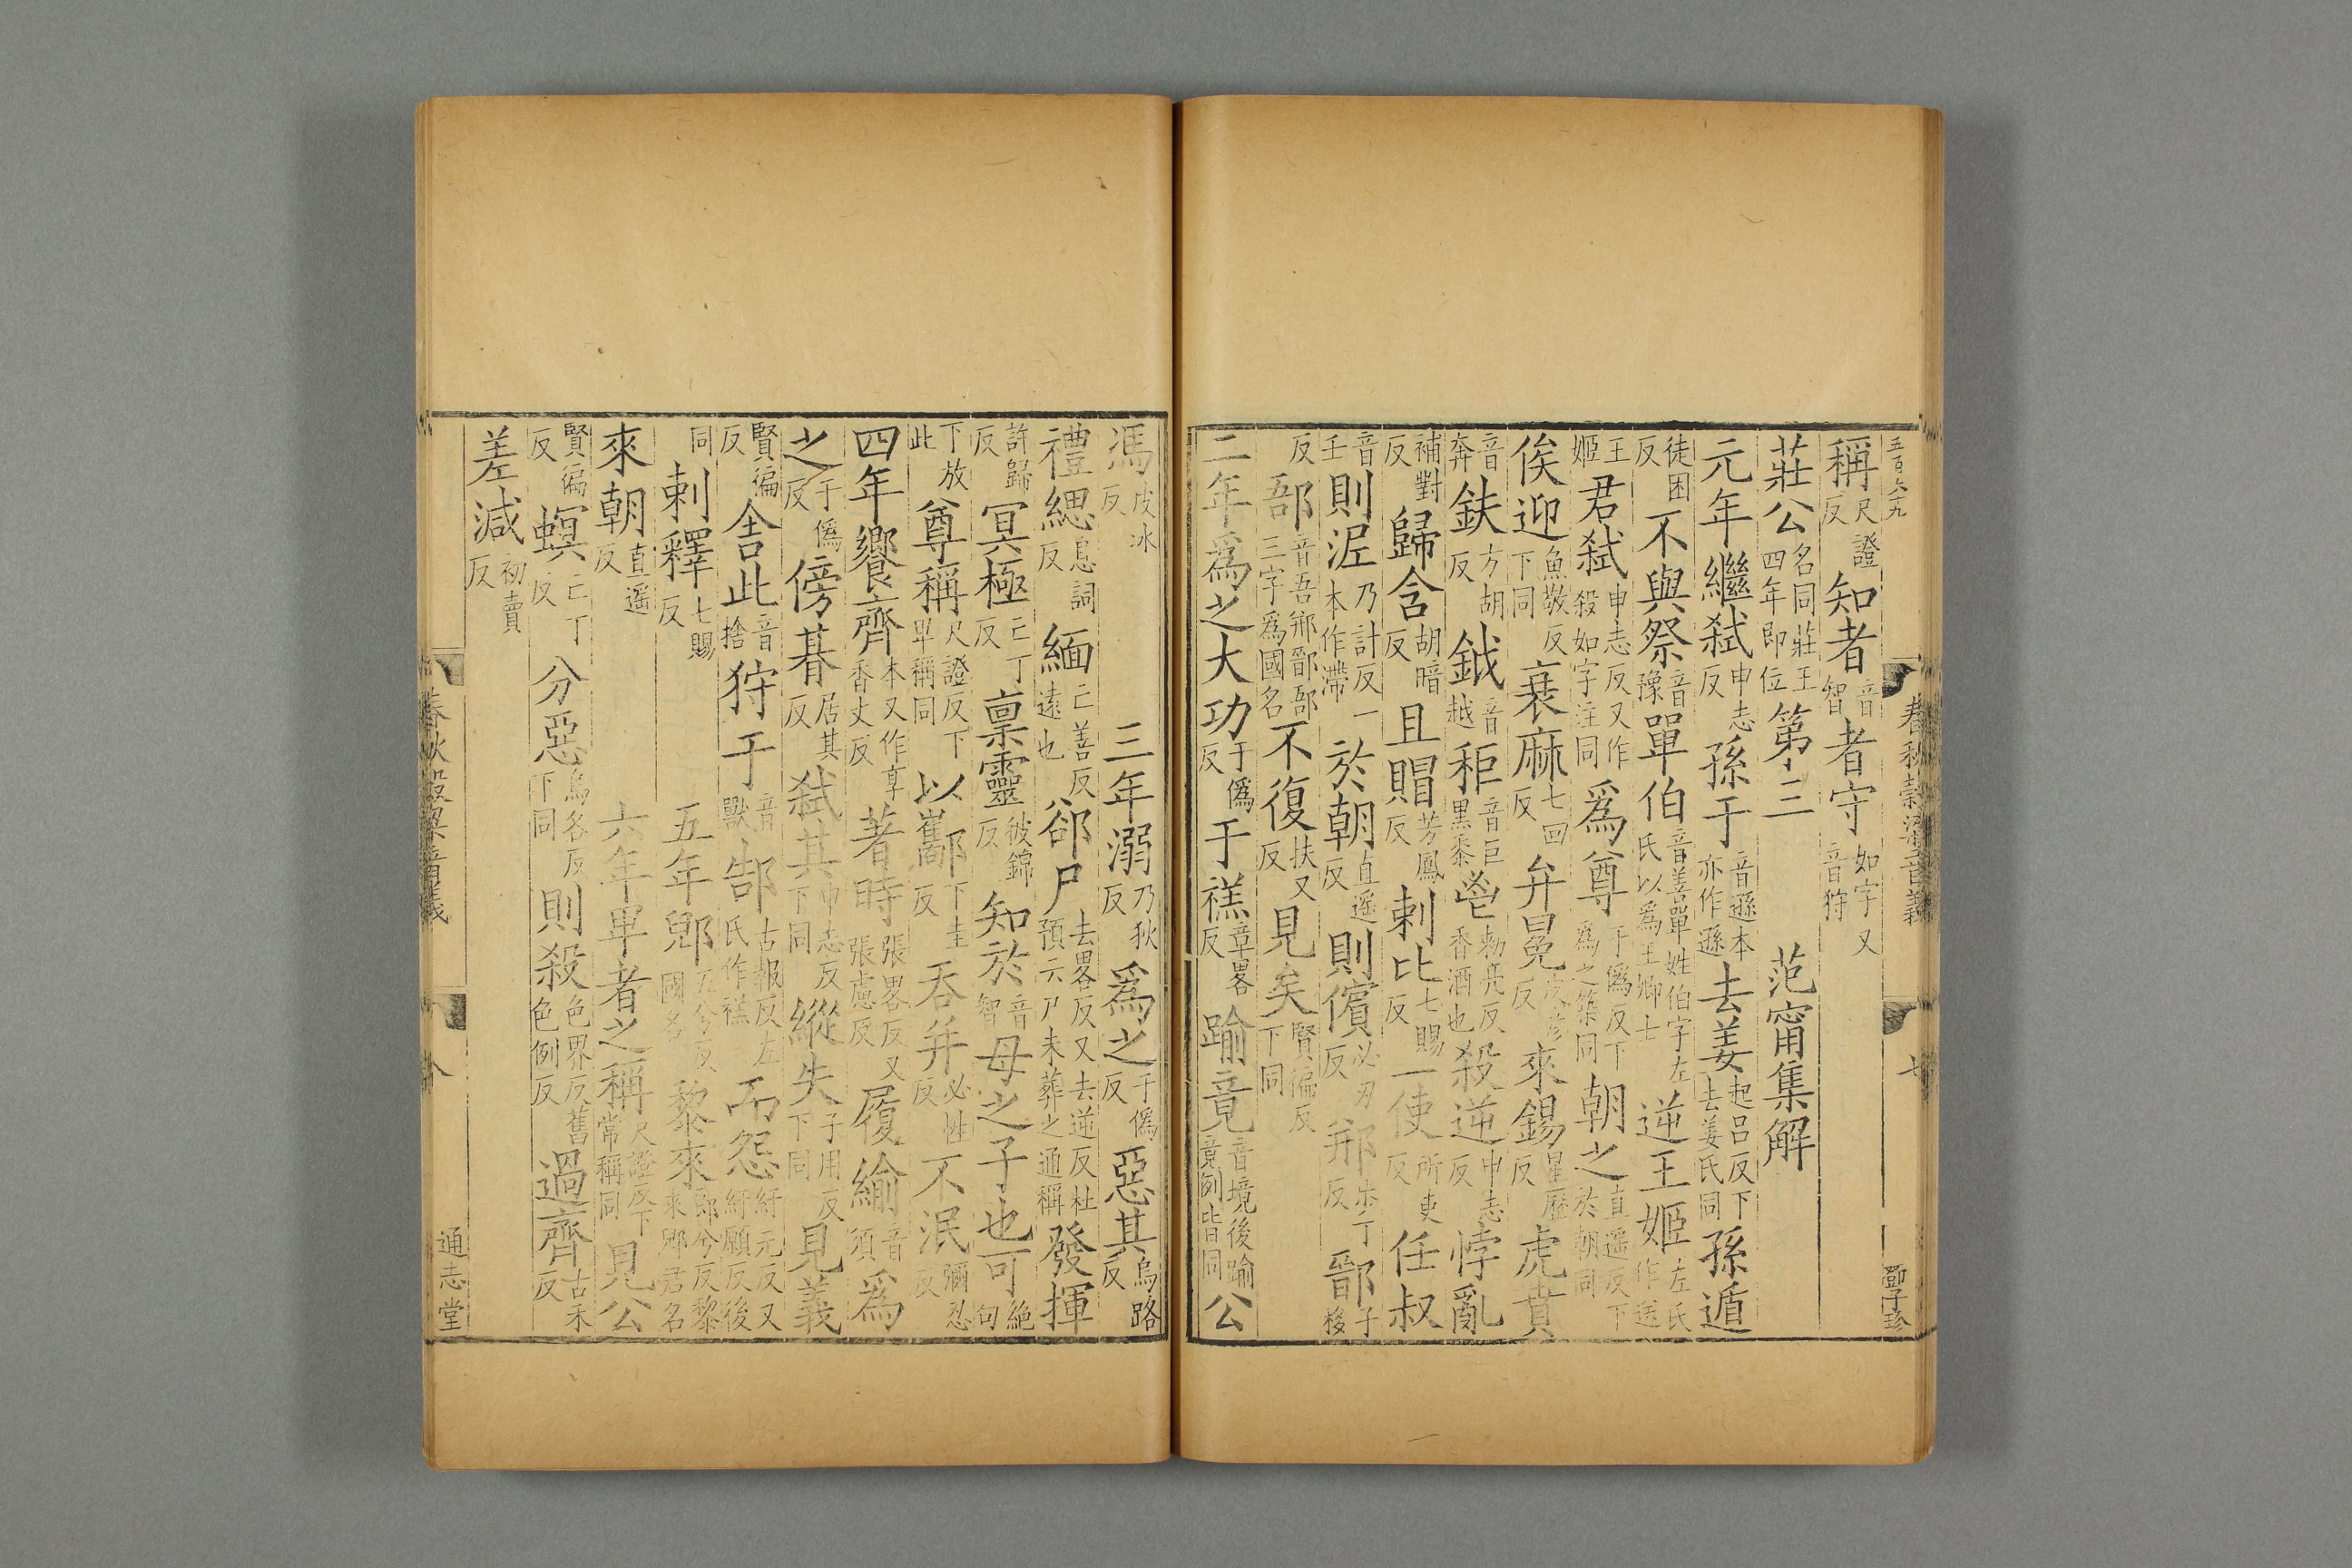 五百六十九
春秋穀梁音義 七 鄧子珍
稱尺證反知者音智者守如字又音狩
莊公名同莊王四年即位第三 范甯集解
元年繼弒申志反孫于音遜本亦作遜去姜起呂反下去姜氏同孫遁
徒困反不與祭音豫單伯音善單姓伯字左氏以爲王卿士逆王姬左氏作送
王姬君弒申志反又作殺如字注同爲尊于僞反下爲之築同朝之直遥反下於朝同
俟迎魚敬反下同衰麻七回反弁冕皮彦反來錫星歷反虎賁
音奔鈇方胡反鉞音越秬音巨黑黍鬯勑亮反香酒也殺逆申志反悖亂
補對反歸含胡暗反且賵芳鳳反刺比七賜反一使所吏反任叔
音壬則泥乃計反一本作滯於朝直遥反則儐必刃反郱步丁反鄑子移
反郚音吾郱鄑郚三字爲國名不復扶又反見矣賢徧反下同
二年爲之大功于僞反于禚章畧反踰竟音境後踰竟例皆同公
馮皮冰反 三年溺乃狄反爲之于僞反惡其烏路反
禮緦息詞反緬亡善反遠也郤尸去畧反又去逆反杜預云尸未葬之通稱發揮
許歸反冥極亡丁反稟靈彼錦反知於音智母之子也可絶句
下放此尊稱尺證反下卑稱同以酅下圭反吞并必性反不泯彌忍反
四年饗齊本又作享香丈反著時張畧反又張慮反履緰音須爲
之于僞反傍朞居其反弒其申志反下同縱失子用反下同見義
賢徧反舍此音捨狩于音獸郜古報反左氏作禚而怨紆元反又紆願反後
同刺釋七賜反 五年郳五兮反國名黎來郎兮反黎來郳君名
來朝直遥反 六年卑者之稱尺證反下常稱同見公
賢徧反螟亡丁反分惡烏各反下同則殺色界反舊色例反過齊古禾反
差減初賣反
春秋穀梁音義 八 通志堂